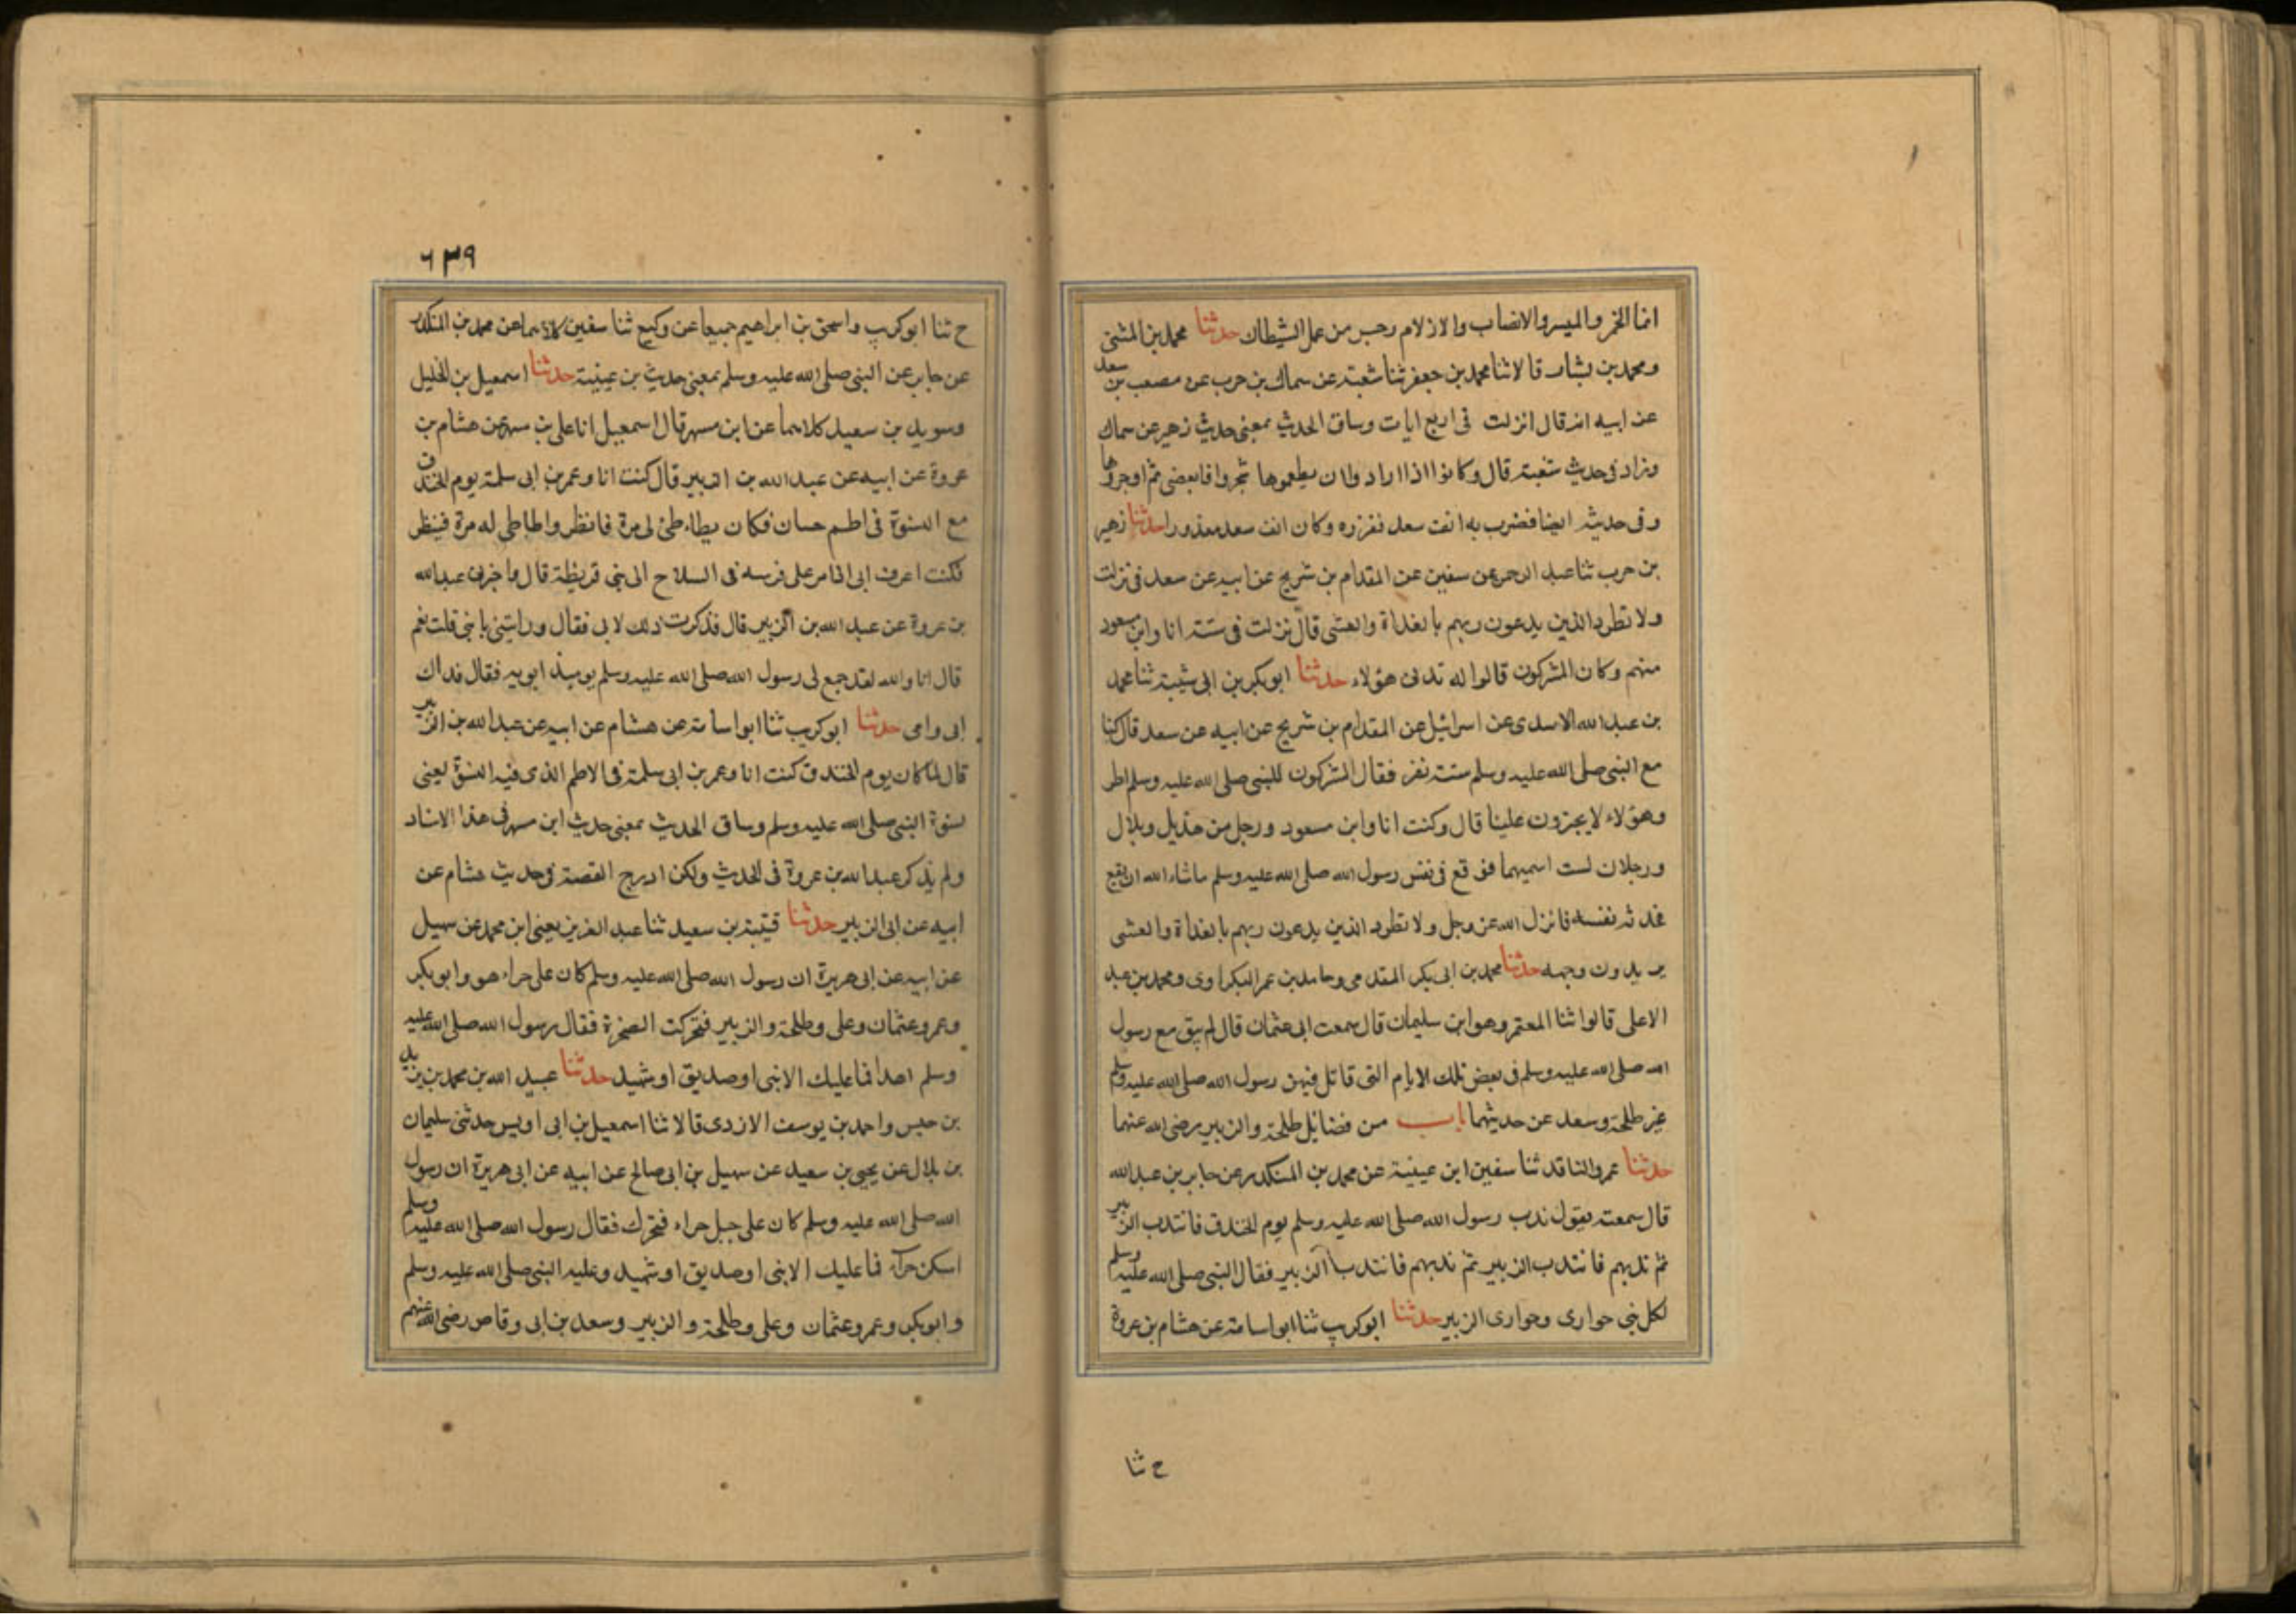 انما الخمر والميسر والانصاب والازلام رجس من عمل الشيطان حدثنا محمد بن المثنى
ومحمد بن بشار قالا ثنا محمد بن جعفر ثنا شعبة عن سماك بن حرب عن مصعب بن سعد
عن ابيه انه قال انزلت في اربع ايات وساق الحديث بمعنى حديث زهير عن سماك
وزاد في حديث شعبة قال وكانوا اذا ارادوا ان يطعموها شجروا فاها بعصى ثم اوجروها
وفى حديثه ايضا فضرب به انف سعد ففزره وكان انف سعد مفذورا حدثنا زهير
بن حرب ثنا عبد الرحمن عن سفين عن المقدام بن شريح عن ابيه عن سعد في نزلت
ولا تطرد الذين يدعون ربهم بالغداة والعشى قال نزلت في ستة انا وابن مسعود
منهم وكان المشركون قالوا له تدنى هؤلاء حدثنا ابو بكر بن ابى شيبة ثنا محمد
بن عبد الله الاسدى عن اسرائيل عن المقدام بن شريح عن ابيه عن سعد قال كنا
مع النبي صلى الله عليه وسلم ستة نفر فقال المشركون للنبي صلى الله عليه وسلم اطر
وهؤلاء لا يجرؤن علينا قال وكنت انا وابن مسعود ورجل من هذيل وبلال
ورجلان لست اسميهما فوقع في نفس رسول الله صلى الله عليه وسلم ماشاء الله ان يقع
فحدث نفسه فانزل الله عز وجل ولا تطرد الذين يدعون ربهم بالغداة والعشى
يريدون وجهه حدثنا محمد بن ابى بكر المقدمى وحامد بن عمر البكراوى ومحمد بن عبد
الاعلى قالوا ثنا المعتمر وهو ابن سليمان قال سمعت ابى عثمان قال لم يبق مع رسول
الله صلى الله عليه وسلم فى بعض تلك الايام التى قاتل فيهن رسول الله صلى الله عليه وسلم
غير طلحة وسعد عن حديثهما باب من فضائل طلحة والزبير رضى الله عنهما
حدثنا عمرو الناقد ثنا سفين ابن عيينة عن محمد بن المنكدر عن جابر بن عبد الله
قال سمعته يقول ندب رسول الله صلى الله عليه وسلم يوم الخندق فانتدب الزبير
ثم ندبهم فانتدب الزبير ثم ندبهم فانتدب الزبير فقال النبي صلى الله عليه وسلم
لكل نبي حوارى وحوارى الزبير حدثنا ابو كريب ثنا ابو اسامة عن هشام بن عروة
ح ثنا
٦٣٩
ح ثنا ابو كريب واسحق بن ابراهيم جميعا عن وكيع ثنا سفين كلاهما عن محمد بن المنكدر
عن جابر عن النبي صلى الله عليه وسلم بمعنى حديث بن عيينة حدثنا اسمعيل بن الخليل
وسويد بن سعيد كلاهما عن ابن مسهر قال اسمعيل انا على بن مسهر عن هشام بن
عروة عن ابيه عن عبد الله بن الزبير قال كنت انا وعمر بن ابى سلمة يوم الخندق
مع النسوة فى اطم حسان فكان يطاطئ لى مرة فانظر واطاطى له مرة فينظر
فكنت اعرف ابى اذا مر على فرسه فى السلاح الى بنى قريظة قال واخبرنى عبد الله
بن عروة عن عبد الله بن الزبير قال فذكرت ذلك لابى فقال ورايتنى يا بنى قلت نعم
قال اما والله لقد جمع لى رسول الله صلى الله عليه وسلم يوميذ ابويه فقال فداك
ابى وامى حدثنا ابو كريب ثنا ابو اسامة عن هشام عن ابيه عن عبد الله بن الزبير
قال لما كان يوم الخندق كنت انا وعمر بن ابى سلمة فى الاطم الذى فيه النسوة يعنى
نسوة النبي صلى الله عليه وسلم وساق الحديث بمعنى حديث ابن مسهر فى هذا الاسناد
ولم يذكر عبد الله بن عروة فى الحديث ولكن ادرج القصة فى حديث هشام عن
ابيه عن ابى الزبير حدثنا قتيبة بن سعيد ثنا عبد العزيز يعنى ابن محمد عن سهيل
عن ابيه عن ابى هريرة ان رسول الله صلى الله عليه وسلم كان على حراء هو وابو بكر
وعمر وعثمان وعلى وطلحة والزبير فتحركت الصخرة فقال رسول الله صلى الله عليه
وسلم اهدا فما عليك الا نبى او صديق او شهيد حدثنا عبيد الله بن محمد بن يزيد
بن خنيس واحمد بن يوسف الازدى قالا ثنا اسمعيل بن ابى اويس حدثنى سليمان
بن بلال عن يحيى بن سعيد عن سهيل بن ابى صالح عن ابيه عن ابى هريرة ان رسول
الله صلى الله عليه وسلم كان على جبل حراء فتحرك فقال رسول الله صلى الله عليه وسلم
اسكن حراء فما عليك الا نبى او صديق او شهيد وعليه النبي صلى الله عليه وسلم
وابو بكر وعمر وعثمان وعلى وطلحة والزبير وسعد بن ابى وقاص رضى الله عنهم